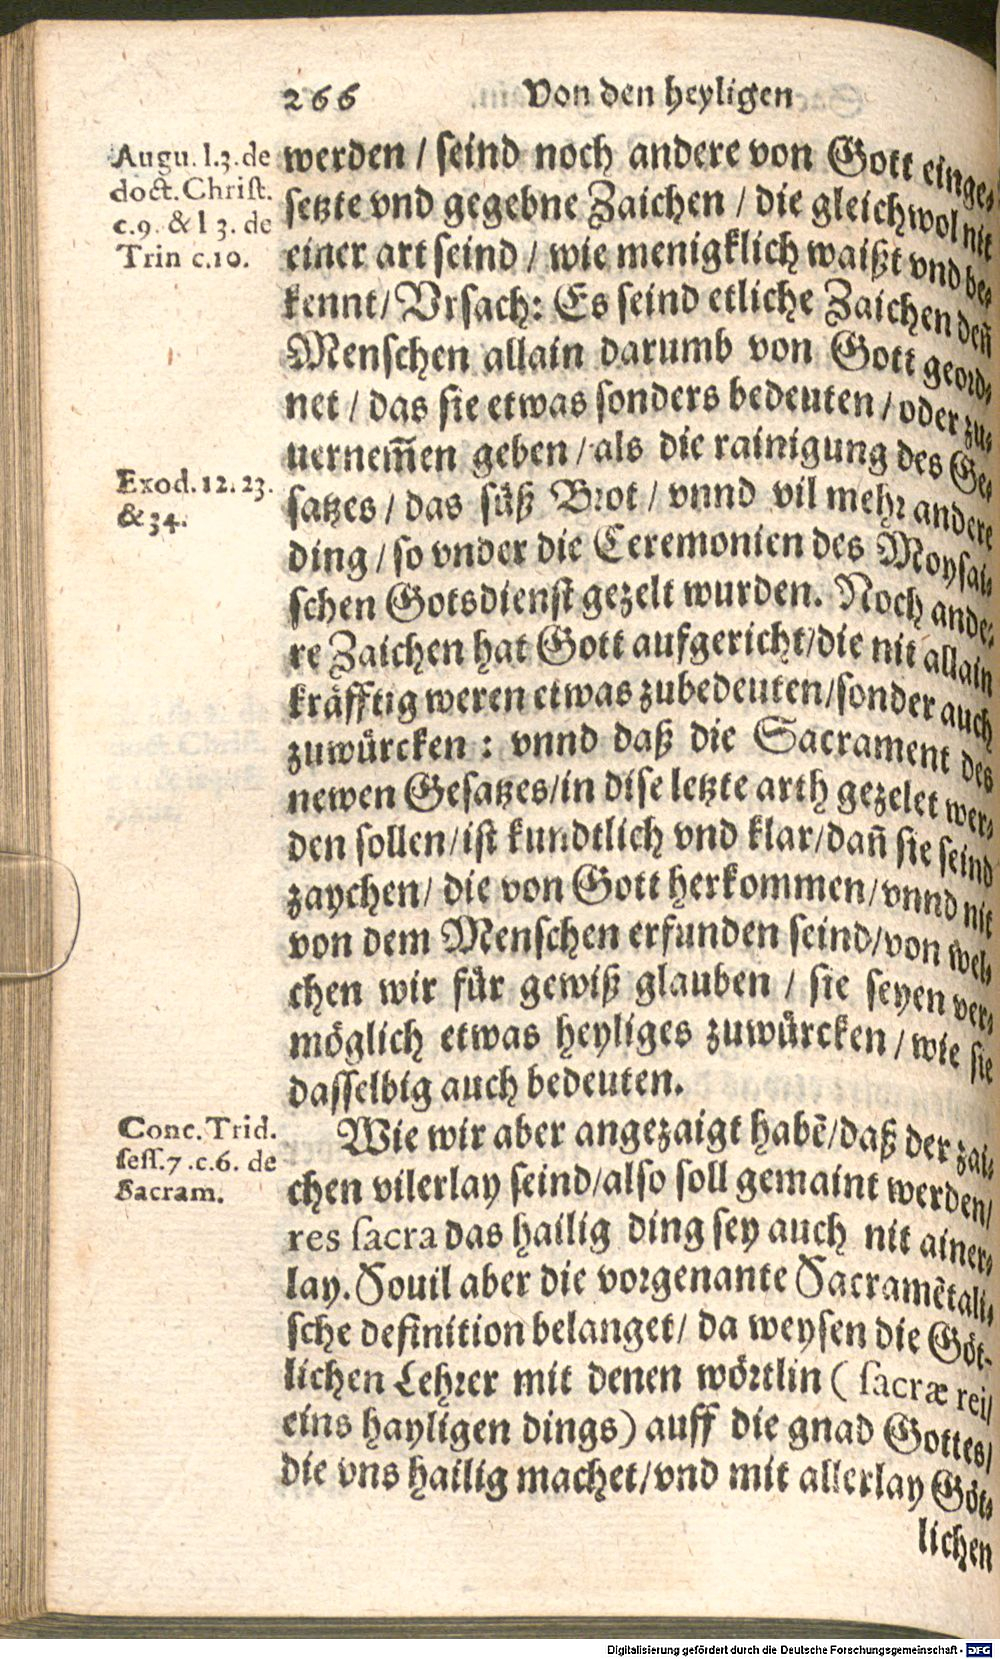 266 Von den heyligen
Augu. l.3. de
doct. Christ.
c.9. & l 3. de
Trin c.10.
werden / seind noch andere von Gott einge⸗
setzte vnd gegebne Zaichen / die gleichwol nit
einer art seind / wie menigklich waißt vnd be⸗
kennt/ Vrsach: Es seind etliche Zaichen den̄
Menschen allain darumb von Gott geord⸗
net / das sie etwas sonders bedeuten / oder zu⸗
uernem̄en geben / als die rainigung des Ge⸗
Exod. 12. 23.
& 34.
satzes / das süß Brot / vnnd vil mehr andere
ding / so vnder die Ceremonien des Moysai⸗
schen Gotsdienst gezelt wurden. Noch ande⸗
re Zaichen hat Gott aufgericht/die nit allain
kräfftig weren etwas zubedeuten/sonder auch
zuwürcken : vnnd daß die Sacrament des
newen Gesatzes/in dise letzte arth gezelet wer⸗
den sollen/ist kundtlich vnd klar/dan̄ sie seind
zaychen/ die von Gott herkommen/vnnd nit
von dem Menschen erfunden seind/von wel⸗
chen wir für gewiß glauben / sie seyen ver⸗
möglich etwas heyliges zuwürcken / wie sie
dasselbig auch bedeuten.
Conc. Trid.
sess.7.c.6. de
Sacram.
Wie wir aber angezaigt habē/daß der zai⸗
chen vilerlay seind/also soll gemaint werden/
res sacra das hailig ding sey auch nit ainer⸗
lay. Souil aber die vorgenante Sacramētali⸗
sche definition belanget/ da weysen die Göt-
lichen Lehrer mit denen wörtlin ( sacræ rei/
eins hayligen dings) auff die gnad Gottes/
die vns hailig machet/vnd mit allerlay Göt⸗
lichen
Digitalisierung gefördert durch die Deutsche Forschungsgemeinschaft - DFG